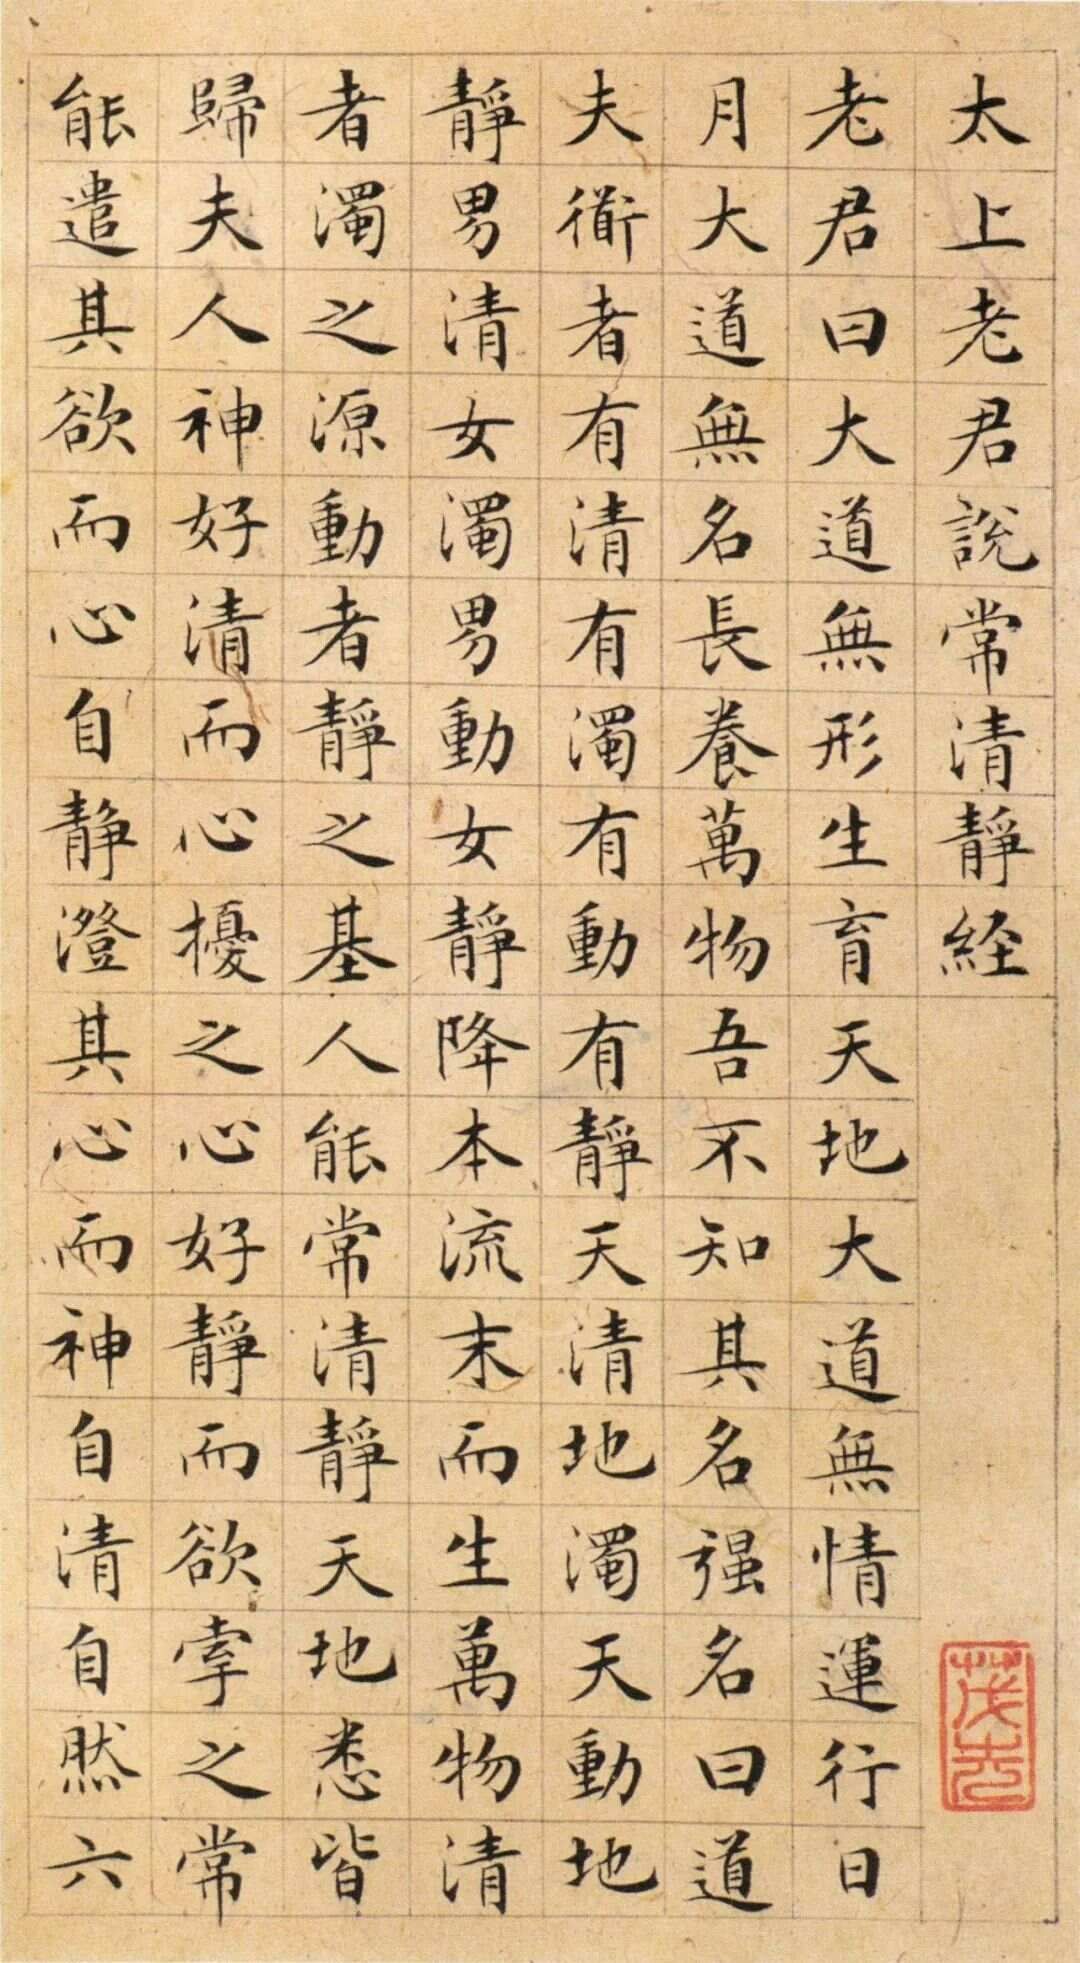 太上老君說常清靜経
老君曰大道無形生育天地大道無情運行日
月大道無名長養萬物吾不知其名强名曰道
夫衜者有清有濁有動有靜天清地濁天動地
靜男清女濁男動女靜降本流末而生萬物清
者濁之源動者靜之基人能常清靜天地悉皆
歸夫人神好清而心擾之心好靜而欲牽之常
能遣其欲而心自静澄其心而神自清自然六
茂先